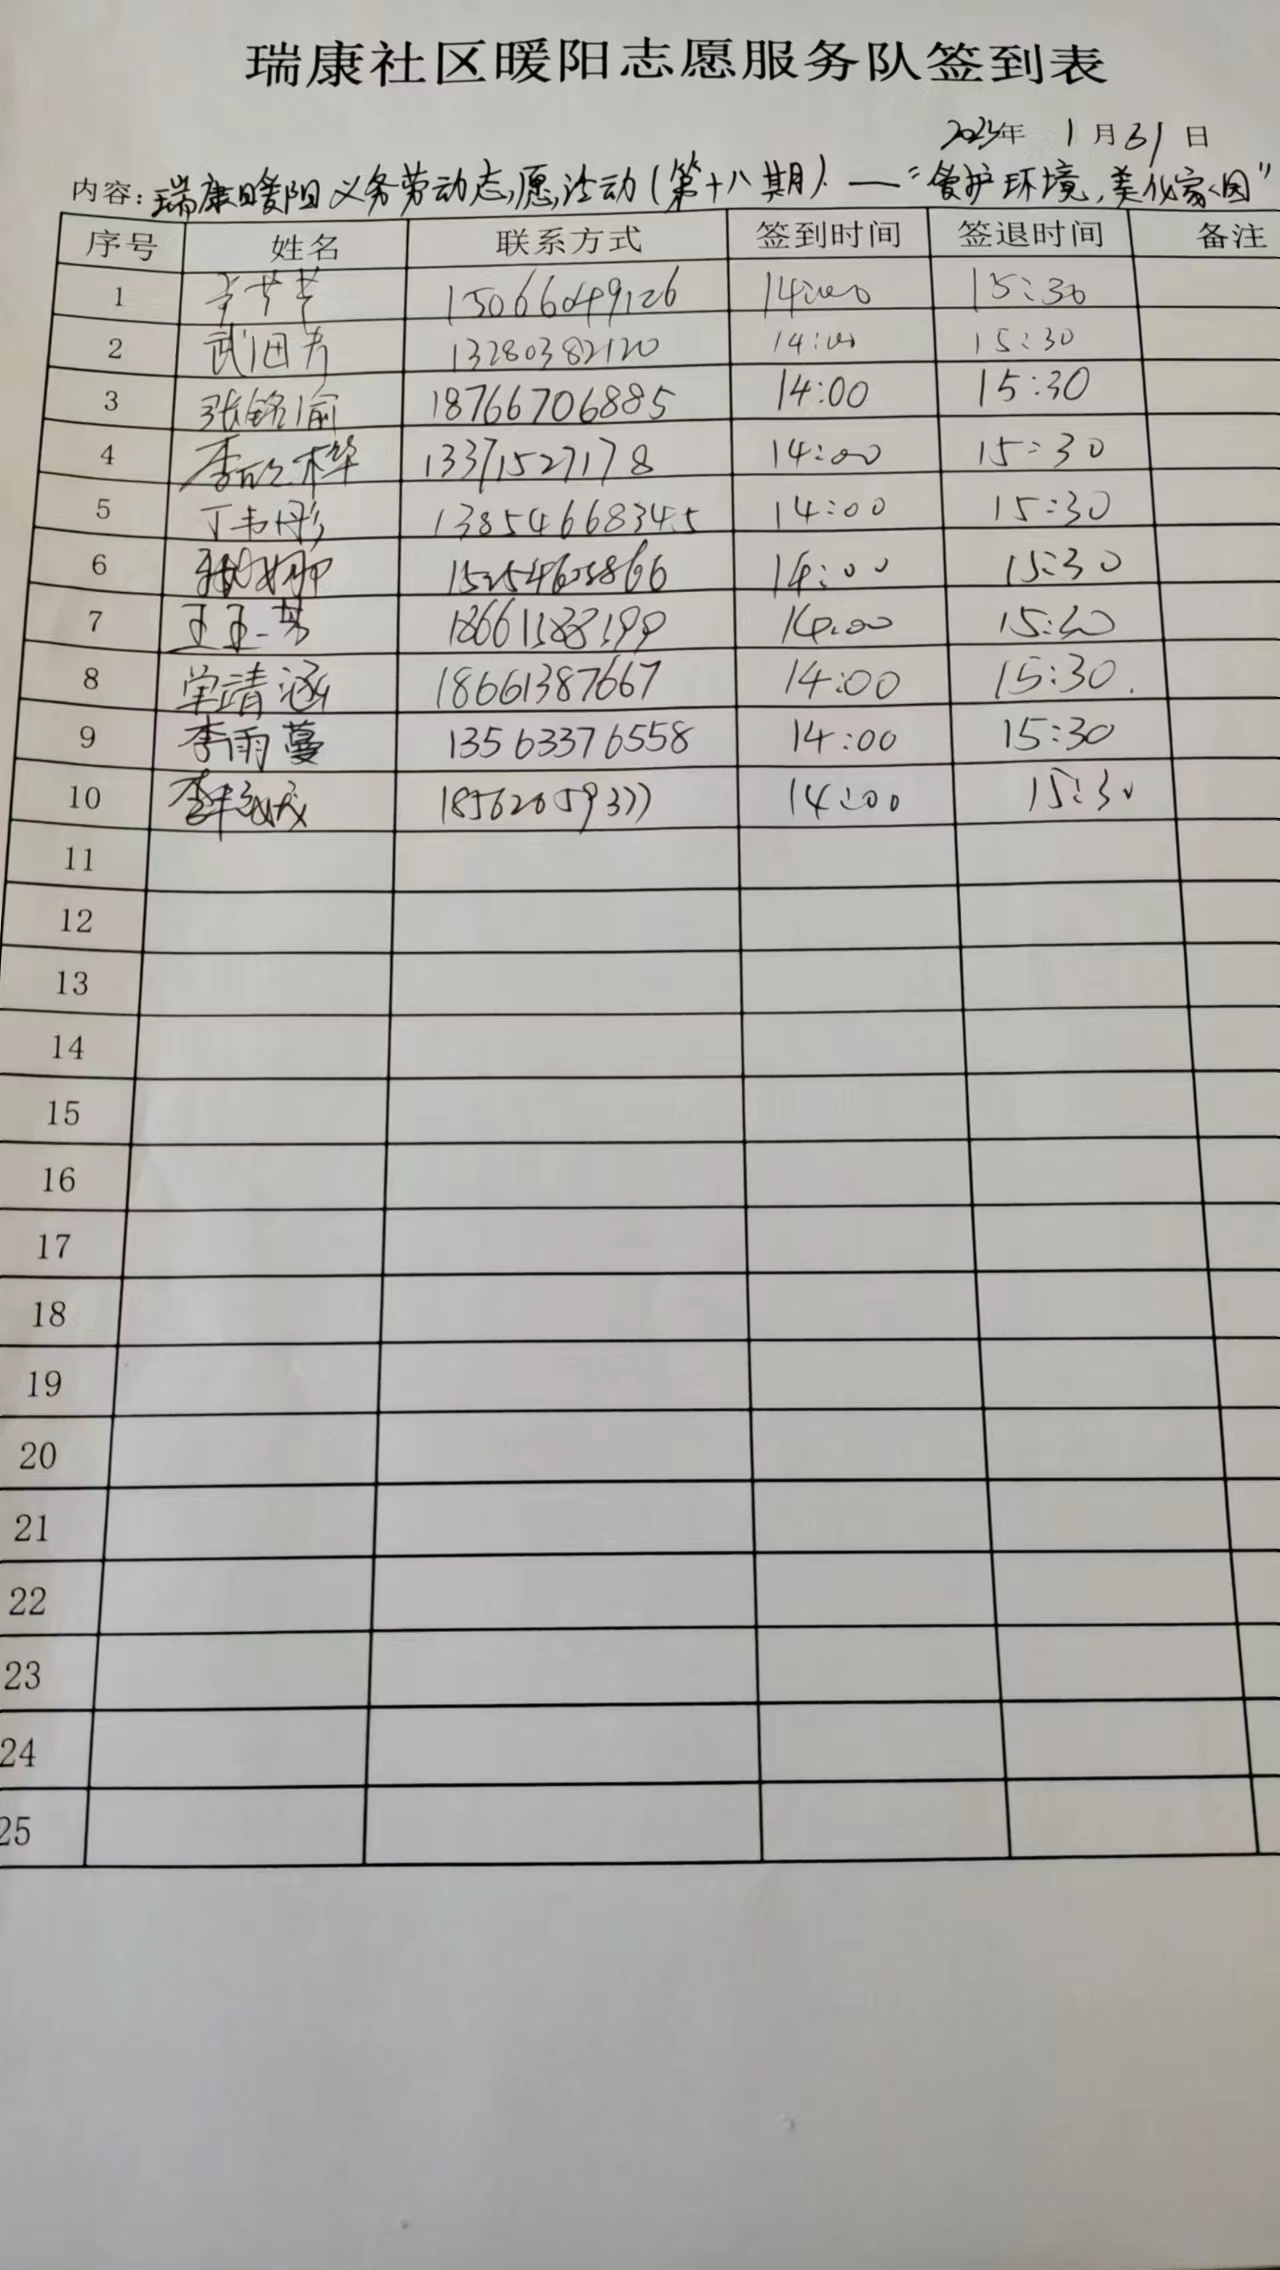 瑞康社区暖阳志愿服务队签到表
年 1月31日
内容：瑞康暖阳义务劳动志愿活动（第十八期）——“爱护环境，美化家园”
序号 姓名 联系方式 签到时间 签退时间 备注
1 15066049126 14:00 15:30
2 武 13280382120 14:00 15:30
3 张铭愉 18766706885 14:00 15:30
4 李欣桦 13371527178 14:00 15:30
5 丁韦彤 13854668345 14:00 15:30
6 14:00 15:30
7 14:00 15:30
8 靖涵 18661387667 14:00 15:30
9 李雨蔓 13563376558 14:00 15:30
10 李 14:00 15:30
11
12
13
14
15
16
17
18
19
20
21
22
23
24
25